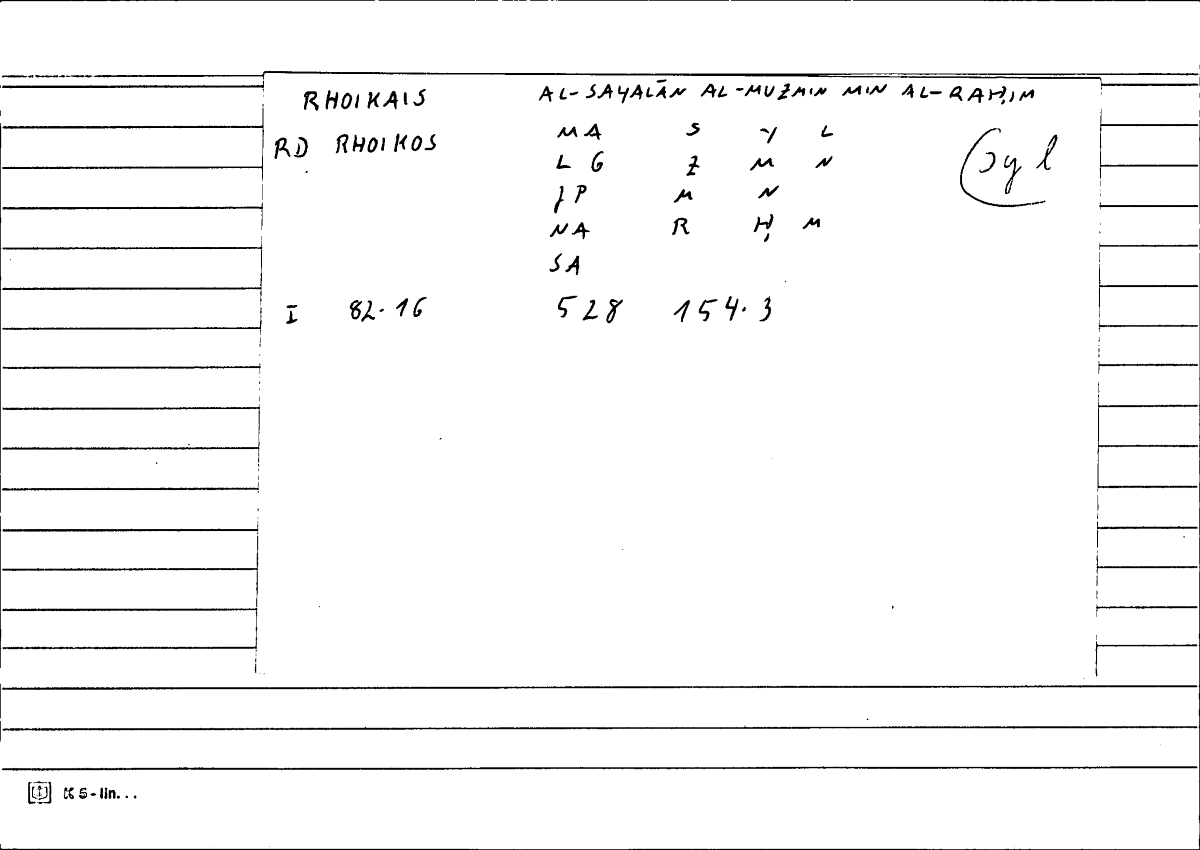 RHOIKAIS AL-SAYALĀN AL-MUZMIN MIN AL-RAḤIM
RD RHOIKOS MA S Y L
syl
L G Z M N
JP M N
NA R Ḥ M
SA
I 82.16 528 154.3
K5-lin...